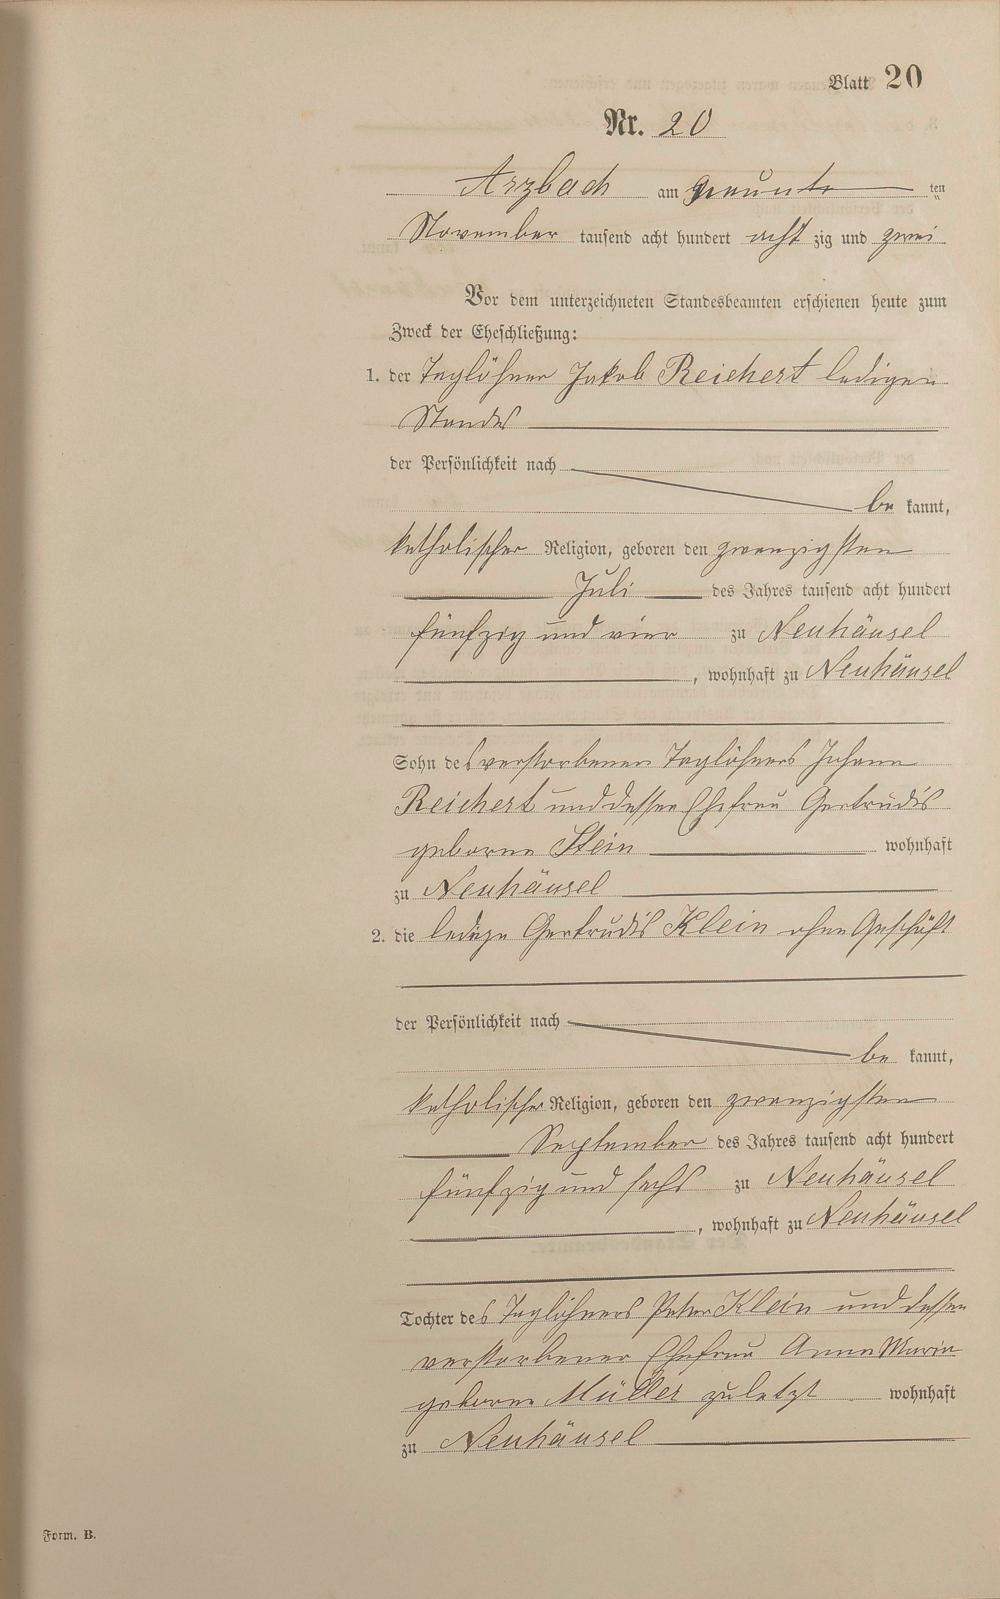 Blatt 20
Nr. 20
Arzbach am neunte ten
November tausend acht hundert acht zig und zwei
Vor dem unterzeichneten Standesbeamten erschienen heute zum
Zweck der Eheschließung:
1. der Taglöhner Jakob Reichert ledigen
Standes
der Persönlichkeit nach
be kannt,
katholischer Religion, geboren den zwanzigsten
Juli des Jahres tausend acht hundert
fünfzig und vier zu Neuhäusel
, wohnhaft zu Neuhäusel
Sohn des verstorbenen Taglöhners Johann
Reichert und dessen Ehefrau Gertrudis
geborne Stein wohnhaft
zu Neuhäusel
2. die ledige Gertrudis Klein ohne Geschäft
der Persönlichkeit nach
be kannt,
katholischer Religion, geboren den zwanzigsten
September des Jahres tausend acht hundert
fünfzig und sechs zu Neuhäusel
, wohnhaft zu Neuhäusel
Tochter des Taglöhners Peter Klein und dessen
verstorbener Ehefrau Anna Maria
geborne Müller zuletzt wohnhaft
zu Neuhäusel
Form. B.